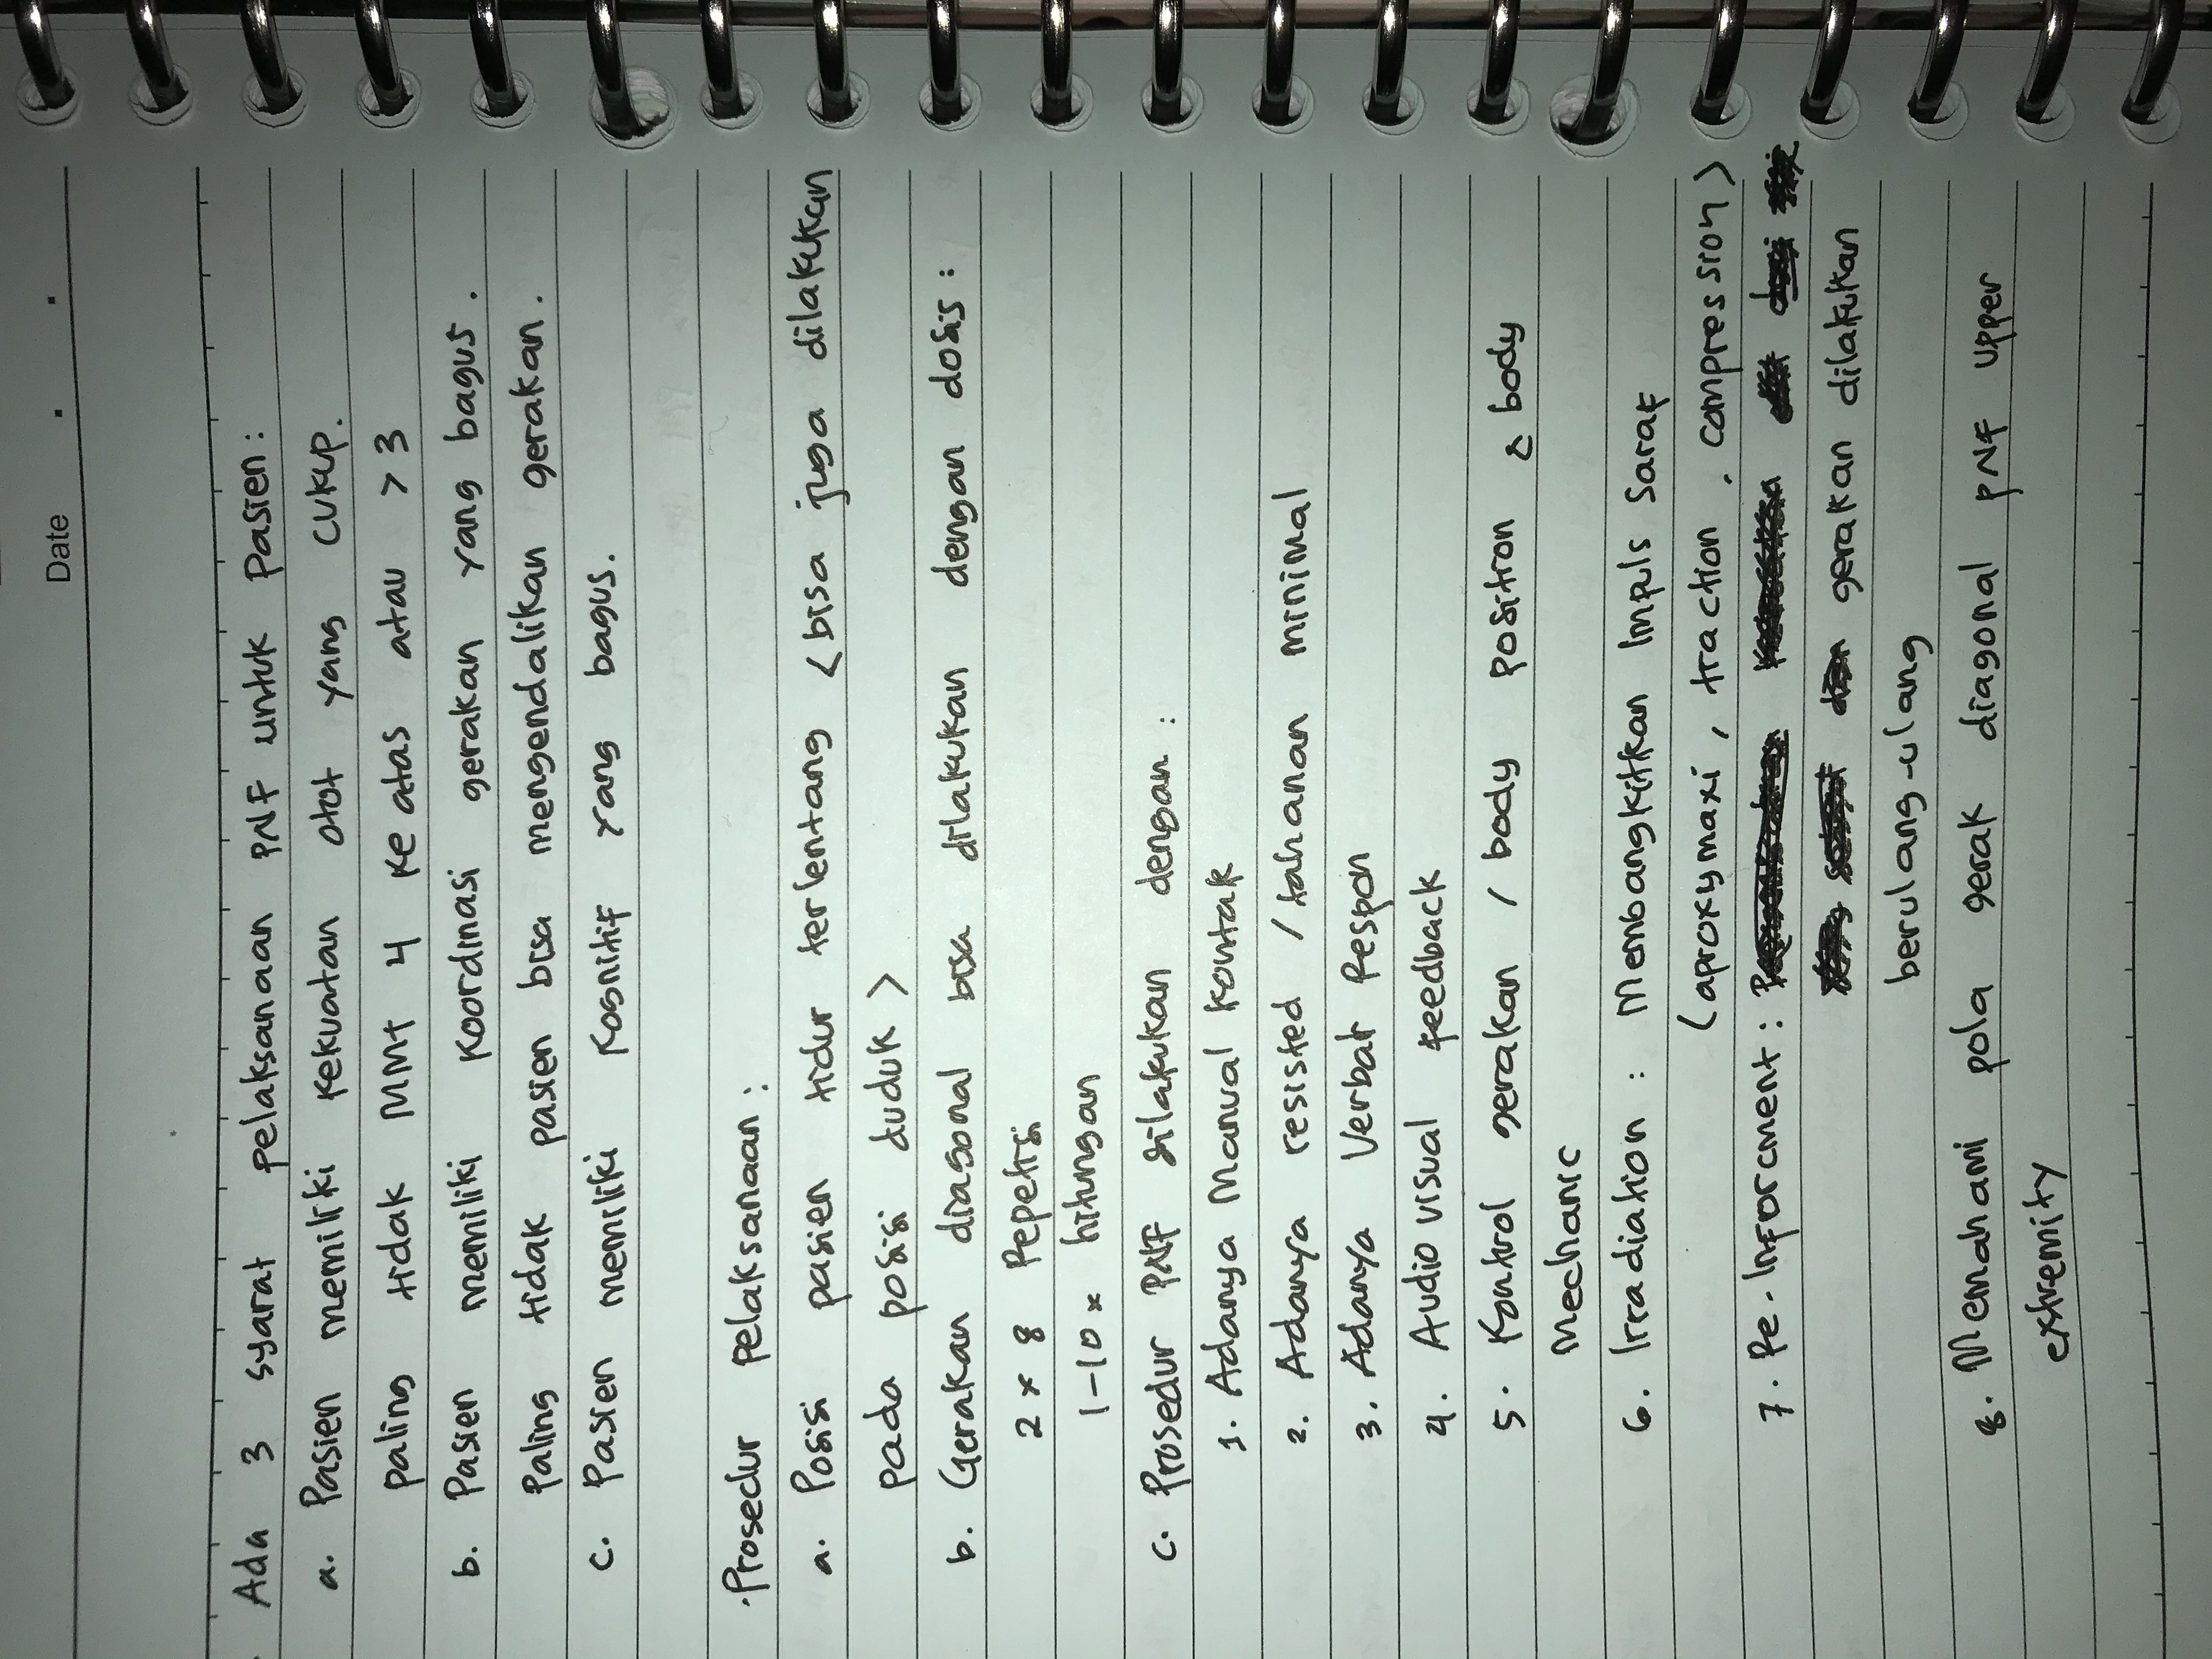 Date . .
· Ada 3 syarat pelaksanaan PNF untuk Pasien :
a. Pasien memiliki kekuatan otot yang cukup.
paling tidak MMt 4 ke atas atau > 3
b. Pasien memiliki koordinasi gerakan yang bagus .
Paling tidak pasien bisa mengendalikan gerakan .
c. Pasien memiliki Kognitif yang bagus.
· Prosedur Pelaksanaan :
a. Posisi pasien tidur terlentang < bisa juga dilakukan
pada posisi duduk >
b. Gerakan diagonal bisa dilakukan dengan dosis :
2 x 8 Repetisi
1-10 x hitungan
c. Prosedur PNF dilakukan dengan :
1. Adanya Manual Kontak
2. Adanya resisted / tahanan minimal
3. Adanya Verbal Respon
4. Audio visual feedback
5. Kontrol gerakan / body position & body
Mechanic
6. Irradiation : Membangkitkan Impuls Saraf
(aproxymaxi , traction , compression >
7. Re-Inforcment :
gerakan dilakukan
berulang-ulang
8. Memahami pola gerak diagonal PNF Upper
extremity